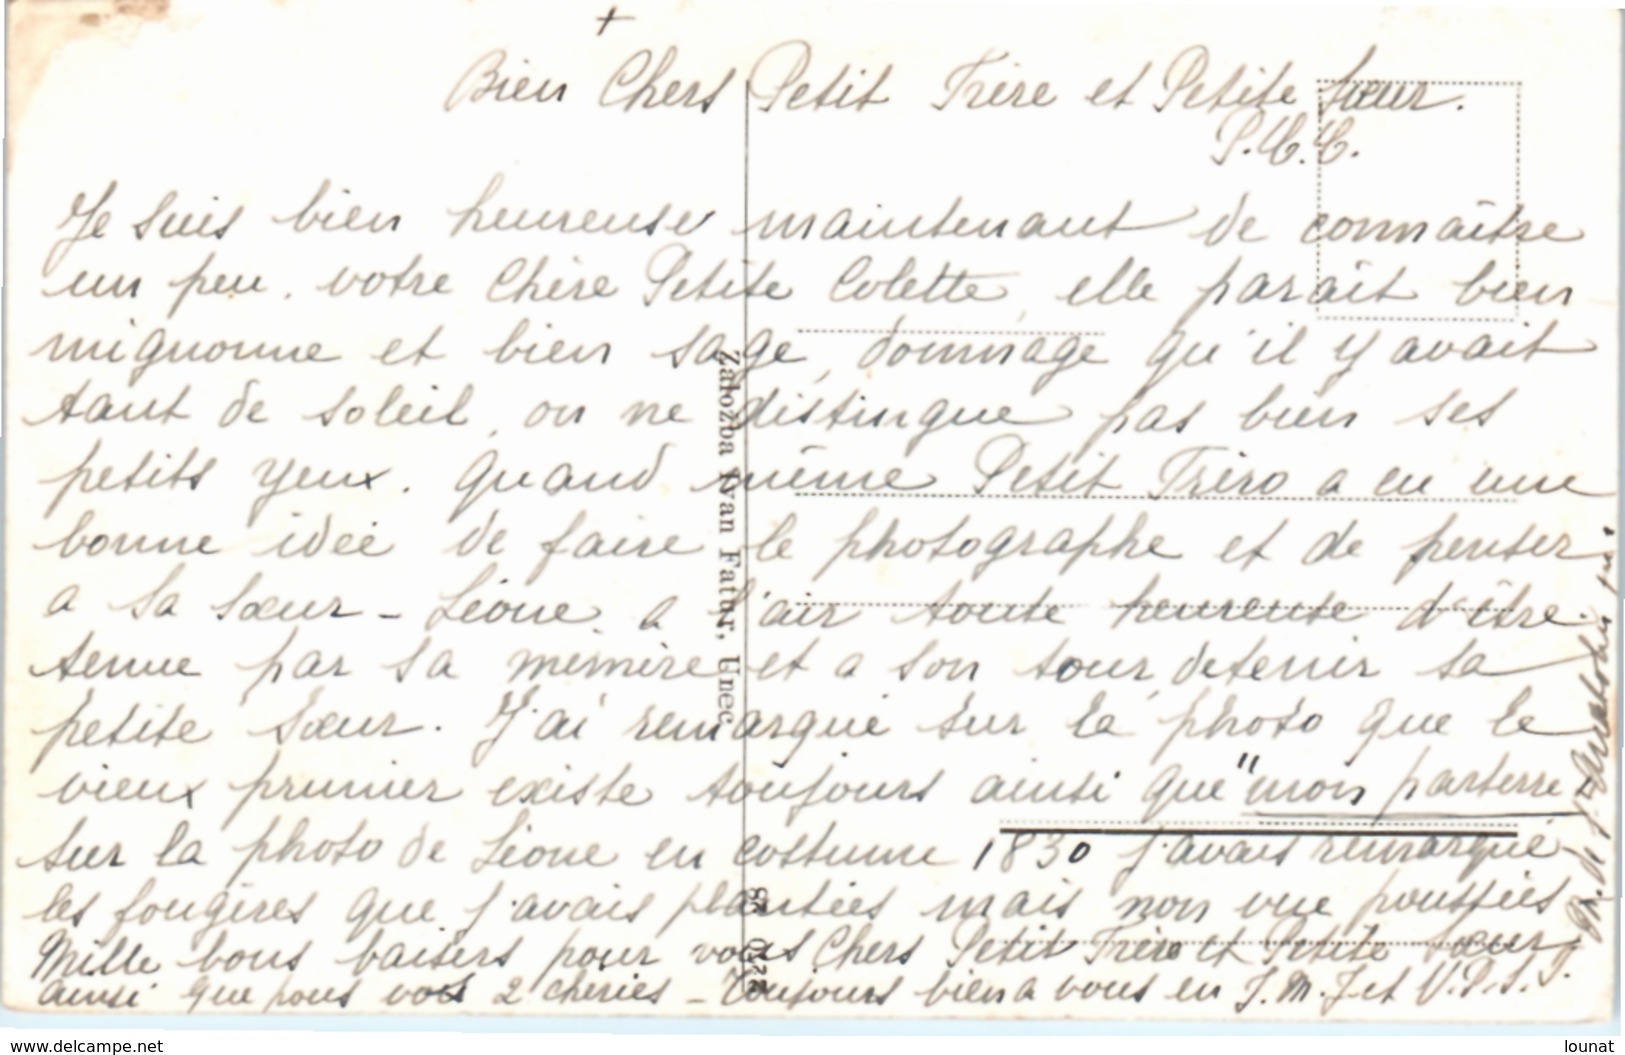 +
Bien Chers Petit Frère et Petite Sœur.
P.C.C.
Je suis bien heureuse maintenant de connaître
un peu votre Chère Petite Colette, elle paraît bien
mignonne et bien sage, dommage qu'il y avait
tant de soleil, on ne distingue pas bien ses
petits yeux. Quand même Petit Frèro a eu une
bonne idée de faire le photographe et de penser
a sa sœur - Léone a l'air toute heureuse d'être
tenue par sa mémère et a son tour de tenir sa
petite sœur. J'ai remarqué sur la photo que le
vieux prunier existe toujours ainsi que "mon parterre"
sur la photo de Léone en costume 1830 j'avais remarqué
les fougères que j'avais plantées mais non vue poussées
Mille bons baisers pour vous Chers Petit Frère et Petite Sœur
ainsi que pour vos 2 chéries - Toujours bien a vous en J.M.J et V.P.S.J.
Založba Ivan Fatur, Unec
www.delcampe.net
lounat